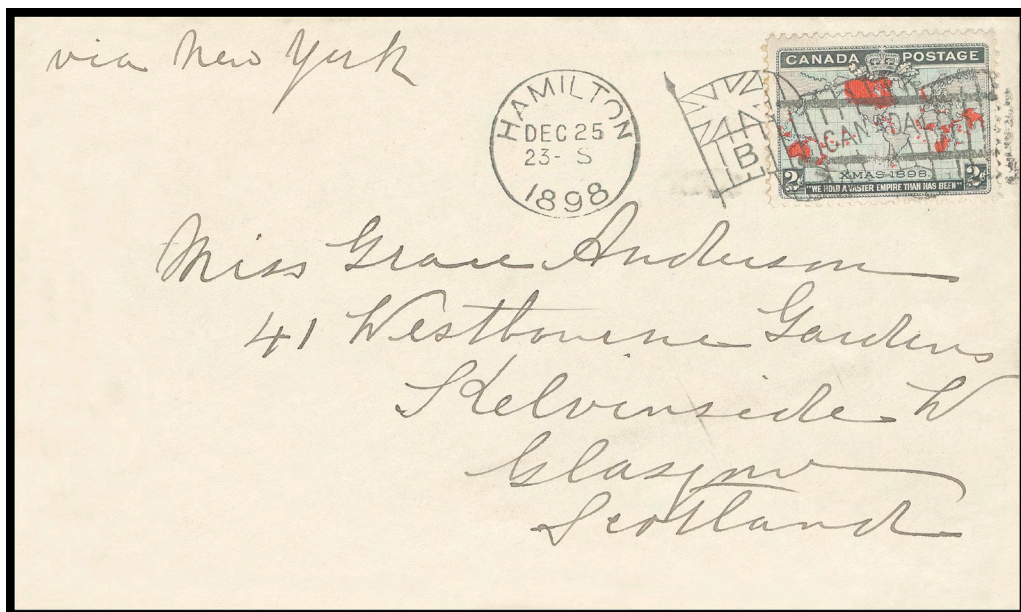 via New York
HAMILTON
DEC 25
23- S
1898
B
CANADA
CANADA POSTAGE
XMAS 1898
2 2
"WE HOLD A VASTER EMPIRE THAN HAS BEEN"
Miss Grace Anderson
41 Westbourne Gardens
Kelvinside W
Glasgow
Scotland